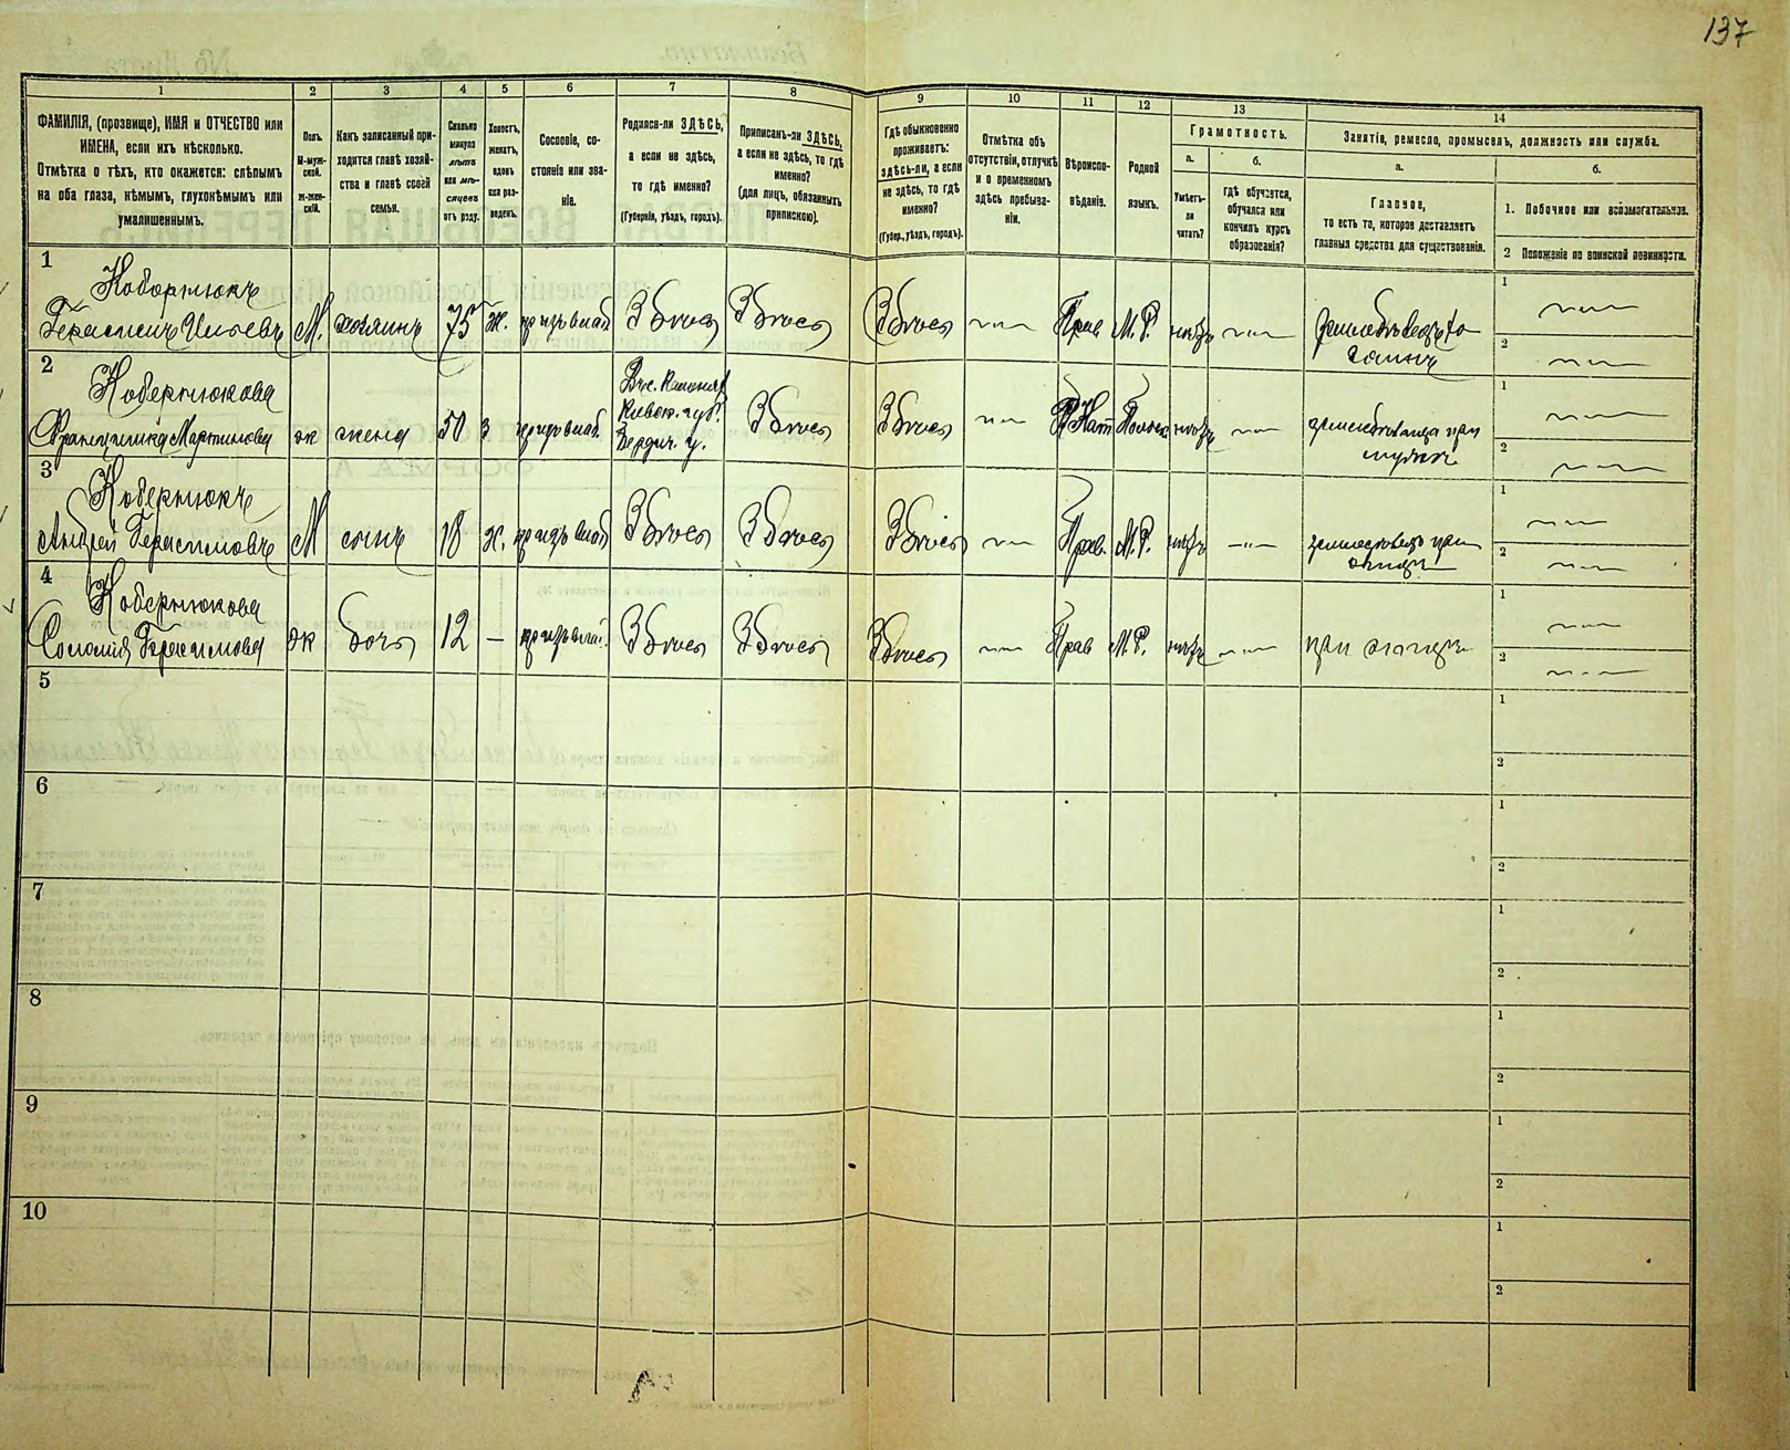 137
1 2 3 4 5 6 7 8 9 10 11 12 13 14
ФАМИЛІЯ, (прозвище), ИМЯ и ОТЧЕСТВО или
ИМЕНА, если ихъ нѣсколько.
Отмѣтка о тѣхъ, кто окажется: слѣпымъ
на оба глаза, нѣмымъ, глухонѣмымъ или
умалишеннымъ.
Полъ.
М-муж-
ской.
Ж-жен-
скій.
Какъ записанный при-
ходится главѣ хозяй-
ства и главѣ своей
семьи.
Сколько
минуло
лѣтъ
или мѣ-
сяцевъ
отъ роду.
Холостъ,
женатъ,
вдовъ
или раз-
веденъ.
Сословіе, со-
стояніе или зва-
ніе.
Родился-ли ЗДѢСЬ,
а если не здѣсь,
то гдѣ именно?
(Губернія, уѣздъ, городъ).
Приписанъ-ли ЗДѢСЬ,
а если не здѣсь, то гдѣ
именно?
(для лицъ, обязанныхъ
припискою).
Гдѣ обыкновенно
проживаетъ:
здѣсь-ли, а если
не здѣсь, то гдѣ
именно?
(Губер., уѣздъ, городъ).
Отмѣтка объ
отсутствіи, отлучкѣ
и о временномъ
здѣсь пребыва-
ніи.
Вѣроиспо-
вѣданіе.
Родной
языкъ.
Грамотность.
а.
Умѣетъ-
ли
читать?
б.
гдѣ обучается,
обучался или
кончилъ курсъ
образованія?
Занятіе, ремесло, промыселъ, должность или служба.
а.
Главное,
то есть то, которое доставляетъ
главныя средства для существованія.
б.
1. Побочное или вспомогательное.
2 Положеніе по воинской повинности.
1
Герасимъ М. хозяинъ 75 ж. Здѣсь Здѣсь Здѣсь Прав М. Р. нѣтъ
1
2
2
Кобернюкова
Мартинова ж жена 50 з Здѣсь Здѣсь нѣтъ
Бердич. у.
1
2
3
Кобернюкъ
Андрей Герасимовъ М сынъ 18 ж. Здѣсь Здѣсь Здѣсь Прав. М. Р. нѣтъ при
отцѣ
1
2
4
Кобернюкова
Соломія Герасимова ж дочь 12 — Здѣсь Здѣсь Здѣсь Прав М. Р. нѣтъ при отцѣ
1
2
5
1
2
6
1
2
7
1
2
8
1
2
9
1
2
10
1
2